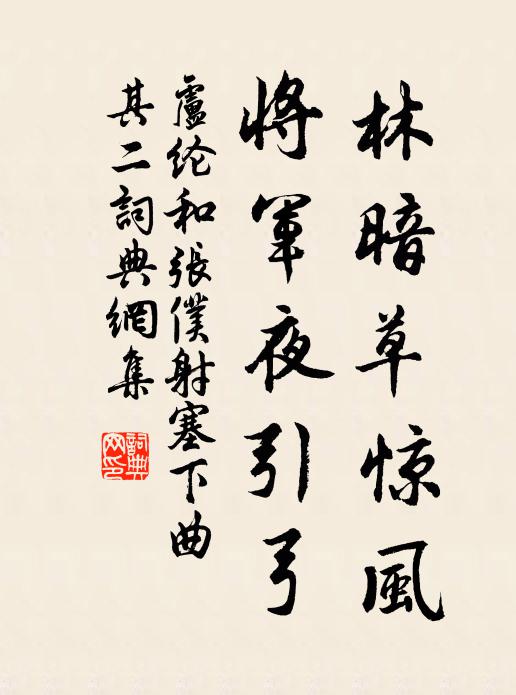 林暗草惊風
將軍夜引弓
盧纶和張僕射塞下曲
其二詞典網集
詞典
网印